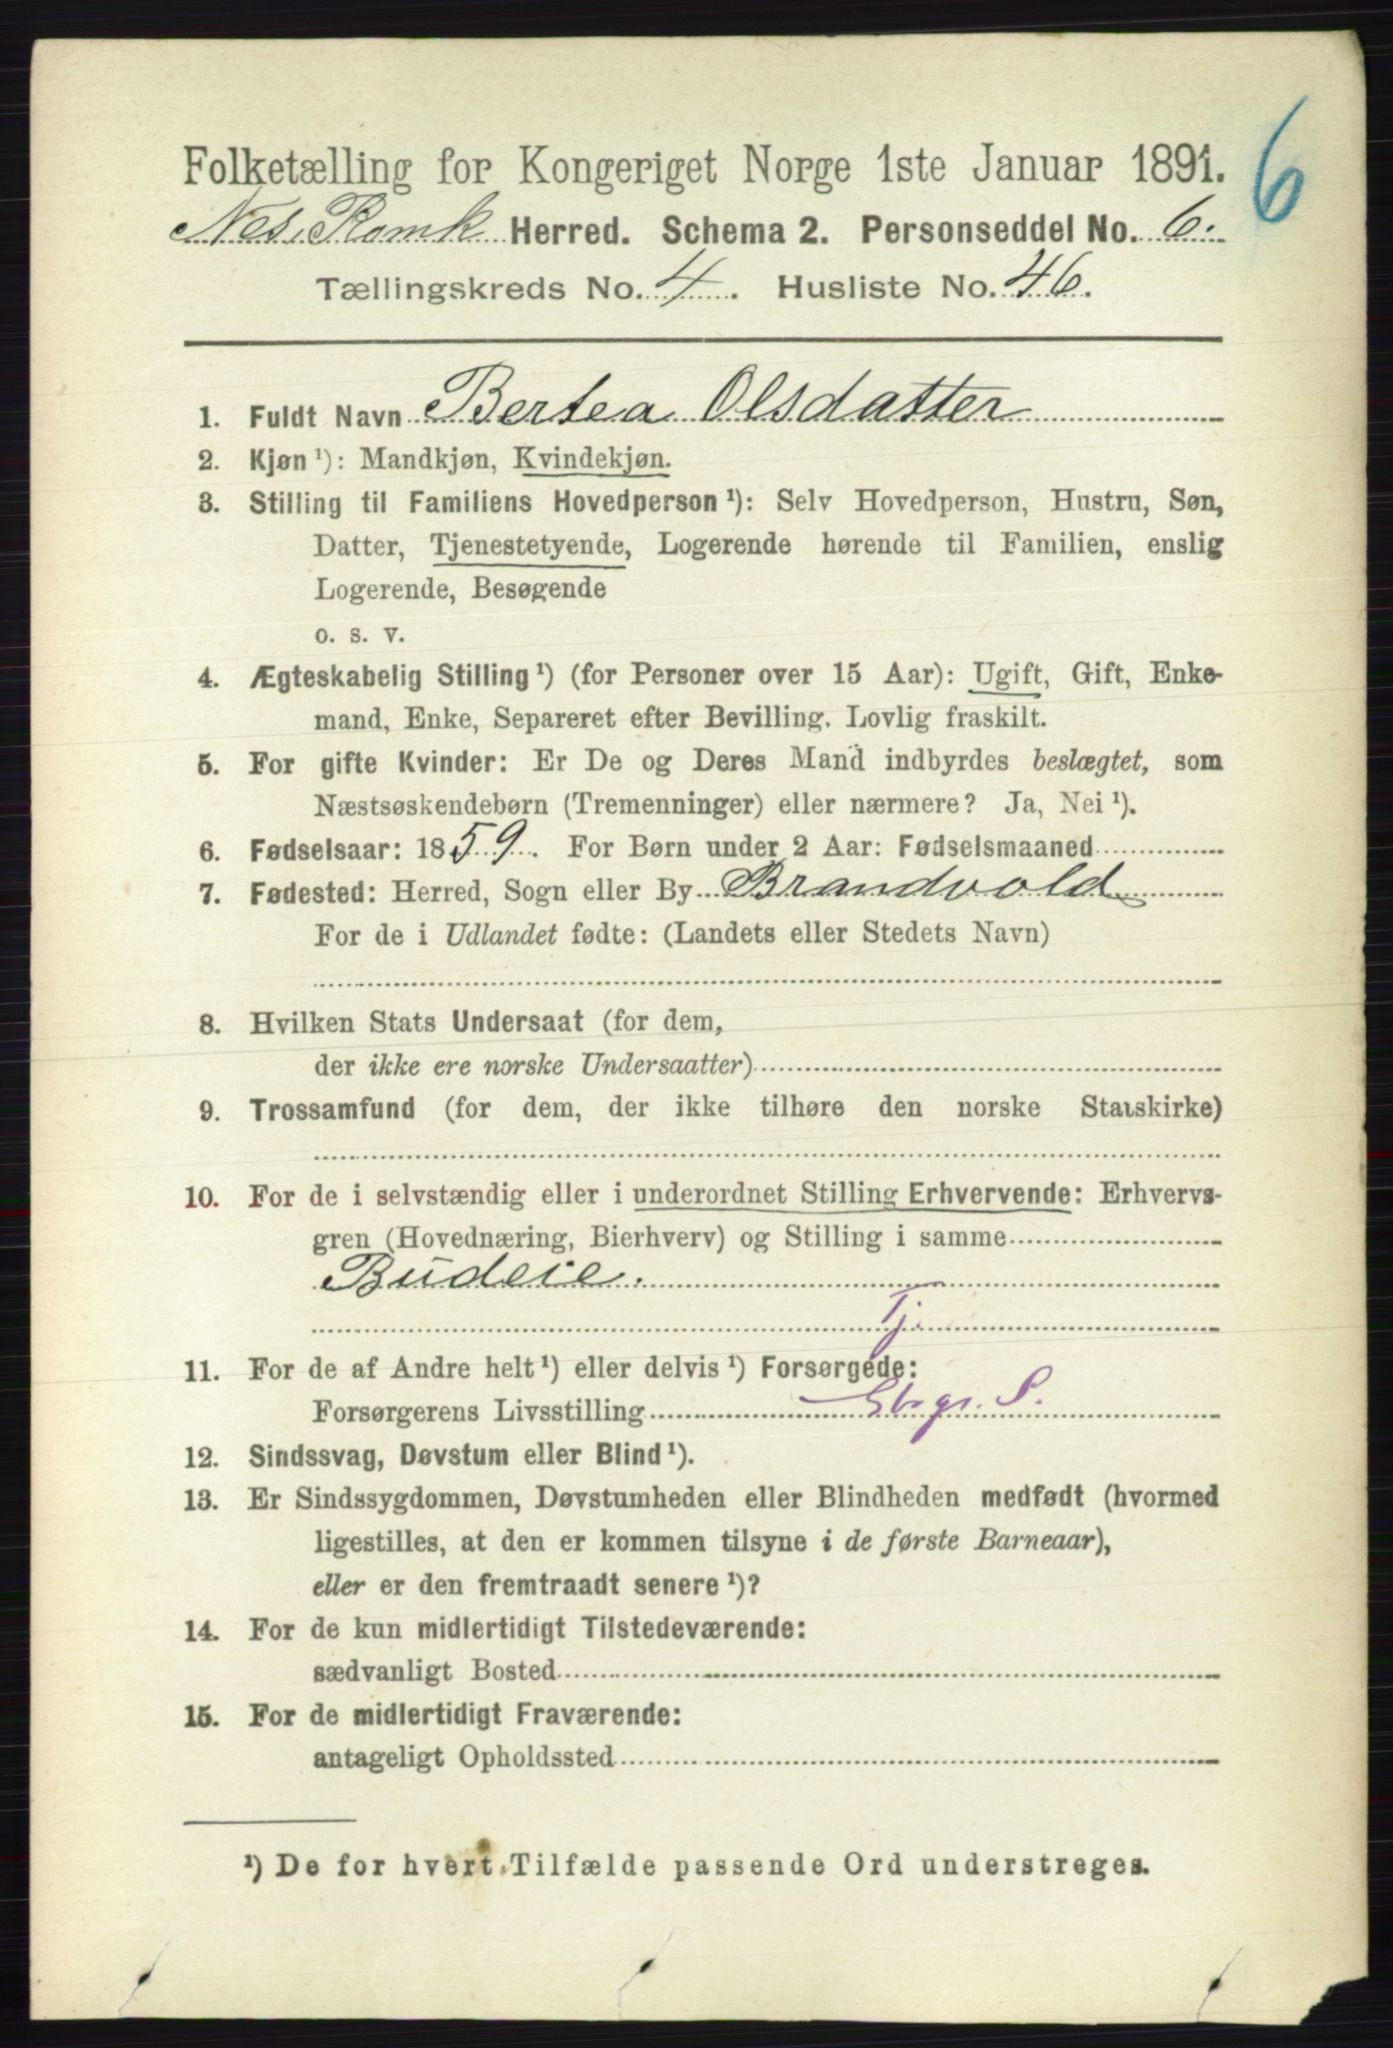 6
Folketælling for Kongeriget Norge 1ste Januar 1891.
Nes, Romk Herred. Schema 2. Personseddel No. 6.
Tællingskreds No. 4. Husliste No. 46.
1. Fuldt Navn Bertea Olsdatter
2. Kjøn ¹): Mandkjøn, Kvindekjøn.
3. Stilling til Familiens Hovedperson ¹): Selv Hovedperson, Hustru, Søn,
Datter, Tjenestetyende, Logerende hørende til Familien, enslig
Logerende, Besøgende
o. s. v.
4. Ægteskabelig Stilling ¹) (for Personer over 15 Aar): Ugift, Gift, Enke-
mand, Enke, Separeret efter Bevilling. Lovlig fraskilt.
5. For gifte Kvinder: Er De og Deres Mand indbyrdes beslægtet, som
Næstsøskendebørn (Tremenninger) eller nærmere? Ja, Nei ¹).
6. Fødselsaar: 1859. For Børn under 2 Aar: Fødselsmaaned
7. Fødested: Herred, Sogn eller By Brandvold
For de i Udlandet fødte: (Landets eller Stedets Navn)
8. Hvilken Stats Undersaat (for dem,
der ikke ere norske Undersaatter)
9. Trossamfund (for dem, der ikke tilhøre den norske Statskirke)
10. For de i selvstændig eller i underordnet Stilling Erhvervende: Erhvervs-
gren (Hovednæring, Bierhverv) og Stilling i samme
Budeie.
Tj.
11. For de af Andre helt ¹) eller delvis ¹) Forsørgede:
Forsørgerens Livsstilling Gbgr. S.
12. Sindssvag, Døvstum eller Blind ¹).
13. Er Sindssygdommen, Døvstumheden eller Blindheden medfødt (hvormed
ligestilles, at den er kommen tilsyne i de første Barneaar),
eller er den fremtraadt senere ¹)?
14. For de kun midlertidigt Tilstedeværende:
sædvanligt Bosted
15. For de midlertidigt Fraværende:
antageligt Opholdssted
¹) De for hvert Tilfælde passende Ord understreges.